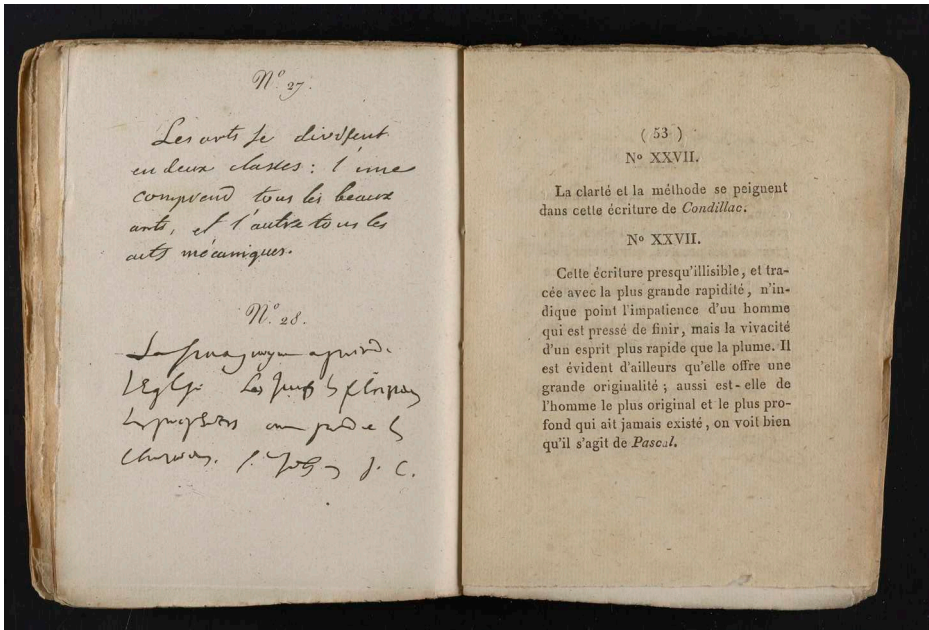 Nº 27.
Les arts se divisent
en deux classes : l'une
comprend tous les beaux
arts, et l'autre tous les
arts mécaniques.
Nº 28.
l'Eglise Les
J. C.
( 53 )
Nº XXVII.
La clarté et la méthode se peignent
dans cette écriture de Condillac.
Nº XXVII.
Cette écriture presqu'illisible, et tra-
cée avec la plus grande rapidité, n'in-
dique point l'impatience d'uu homme
qui est pressé de finir, mais la vivacité
d'un esprit plus rapide que la plume. Il
est évident d'ailleurs qu'elle offre une
grande originalité ; aussi est-elle de
l'homme le plus original et le plus pro-
fond qui ait jamais existé, on voit bien
qu'il s'agit de Pascal.